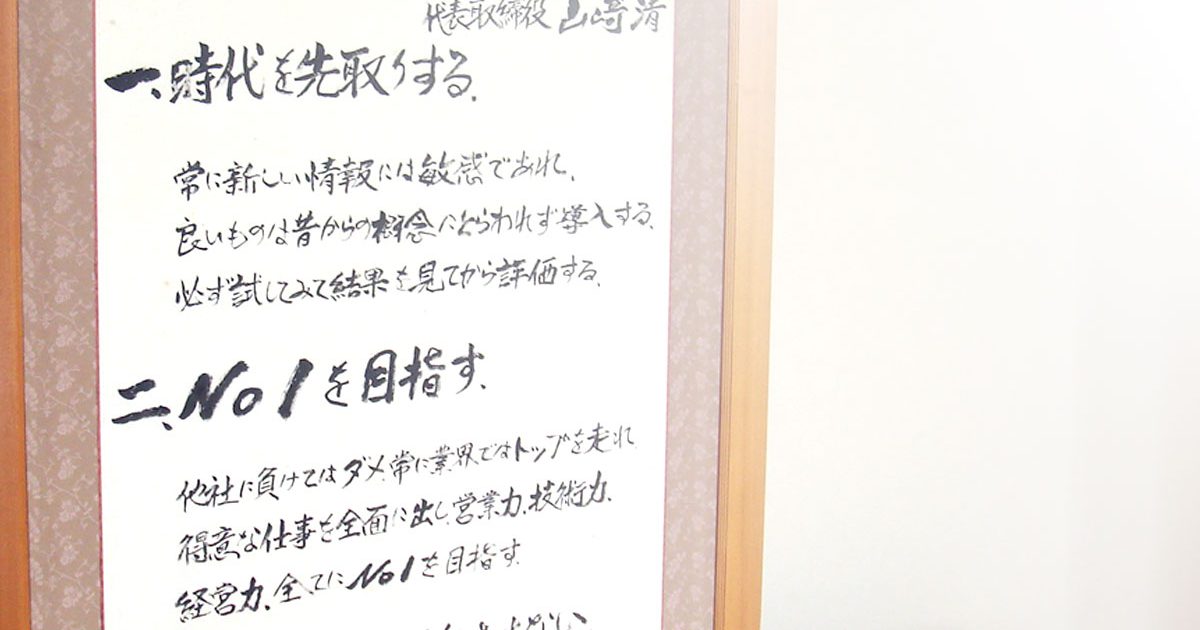 代表取締役 山崎 清
一、時代を先取りする、
常に新しい情報には敏感であれ、
良いものは昔からの概念にとらわれず導入する、
必ず試してみて結果を見てから評価する、
二、No1を目指す、
他社に負けてはダメ、常に業界ではトップを走れ
得意な仕事を全面に出し、営業力、技術力、
経営力、全てにNo1を目指す、